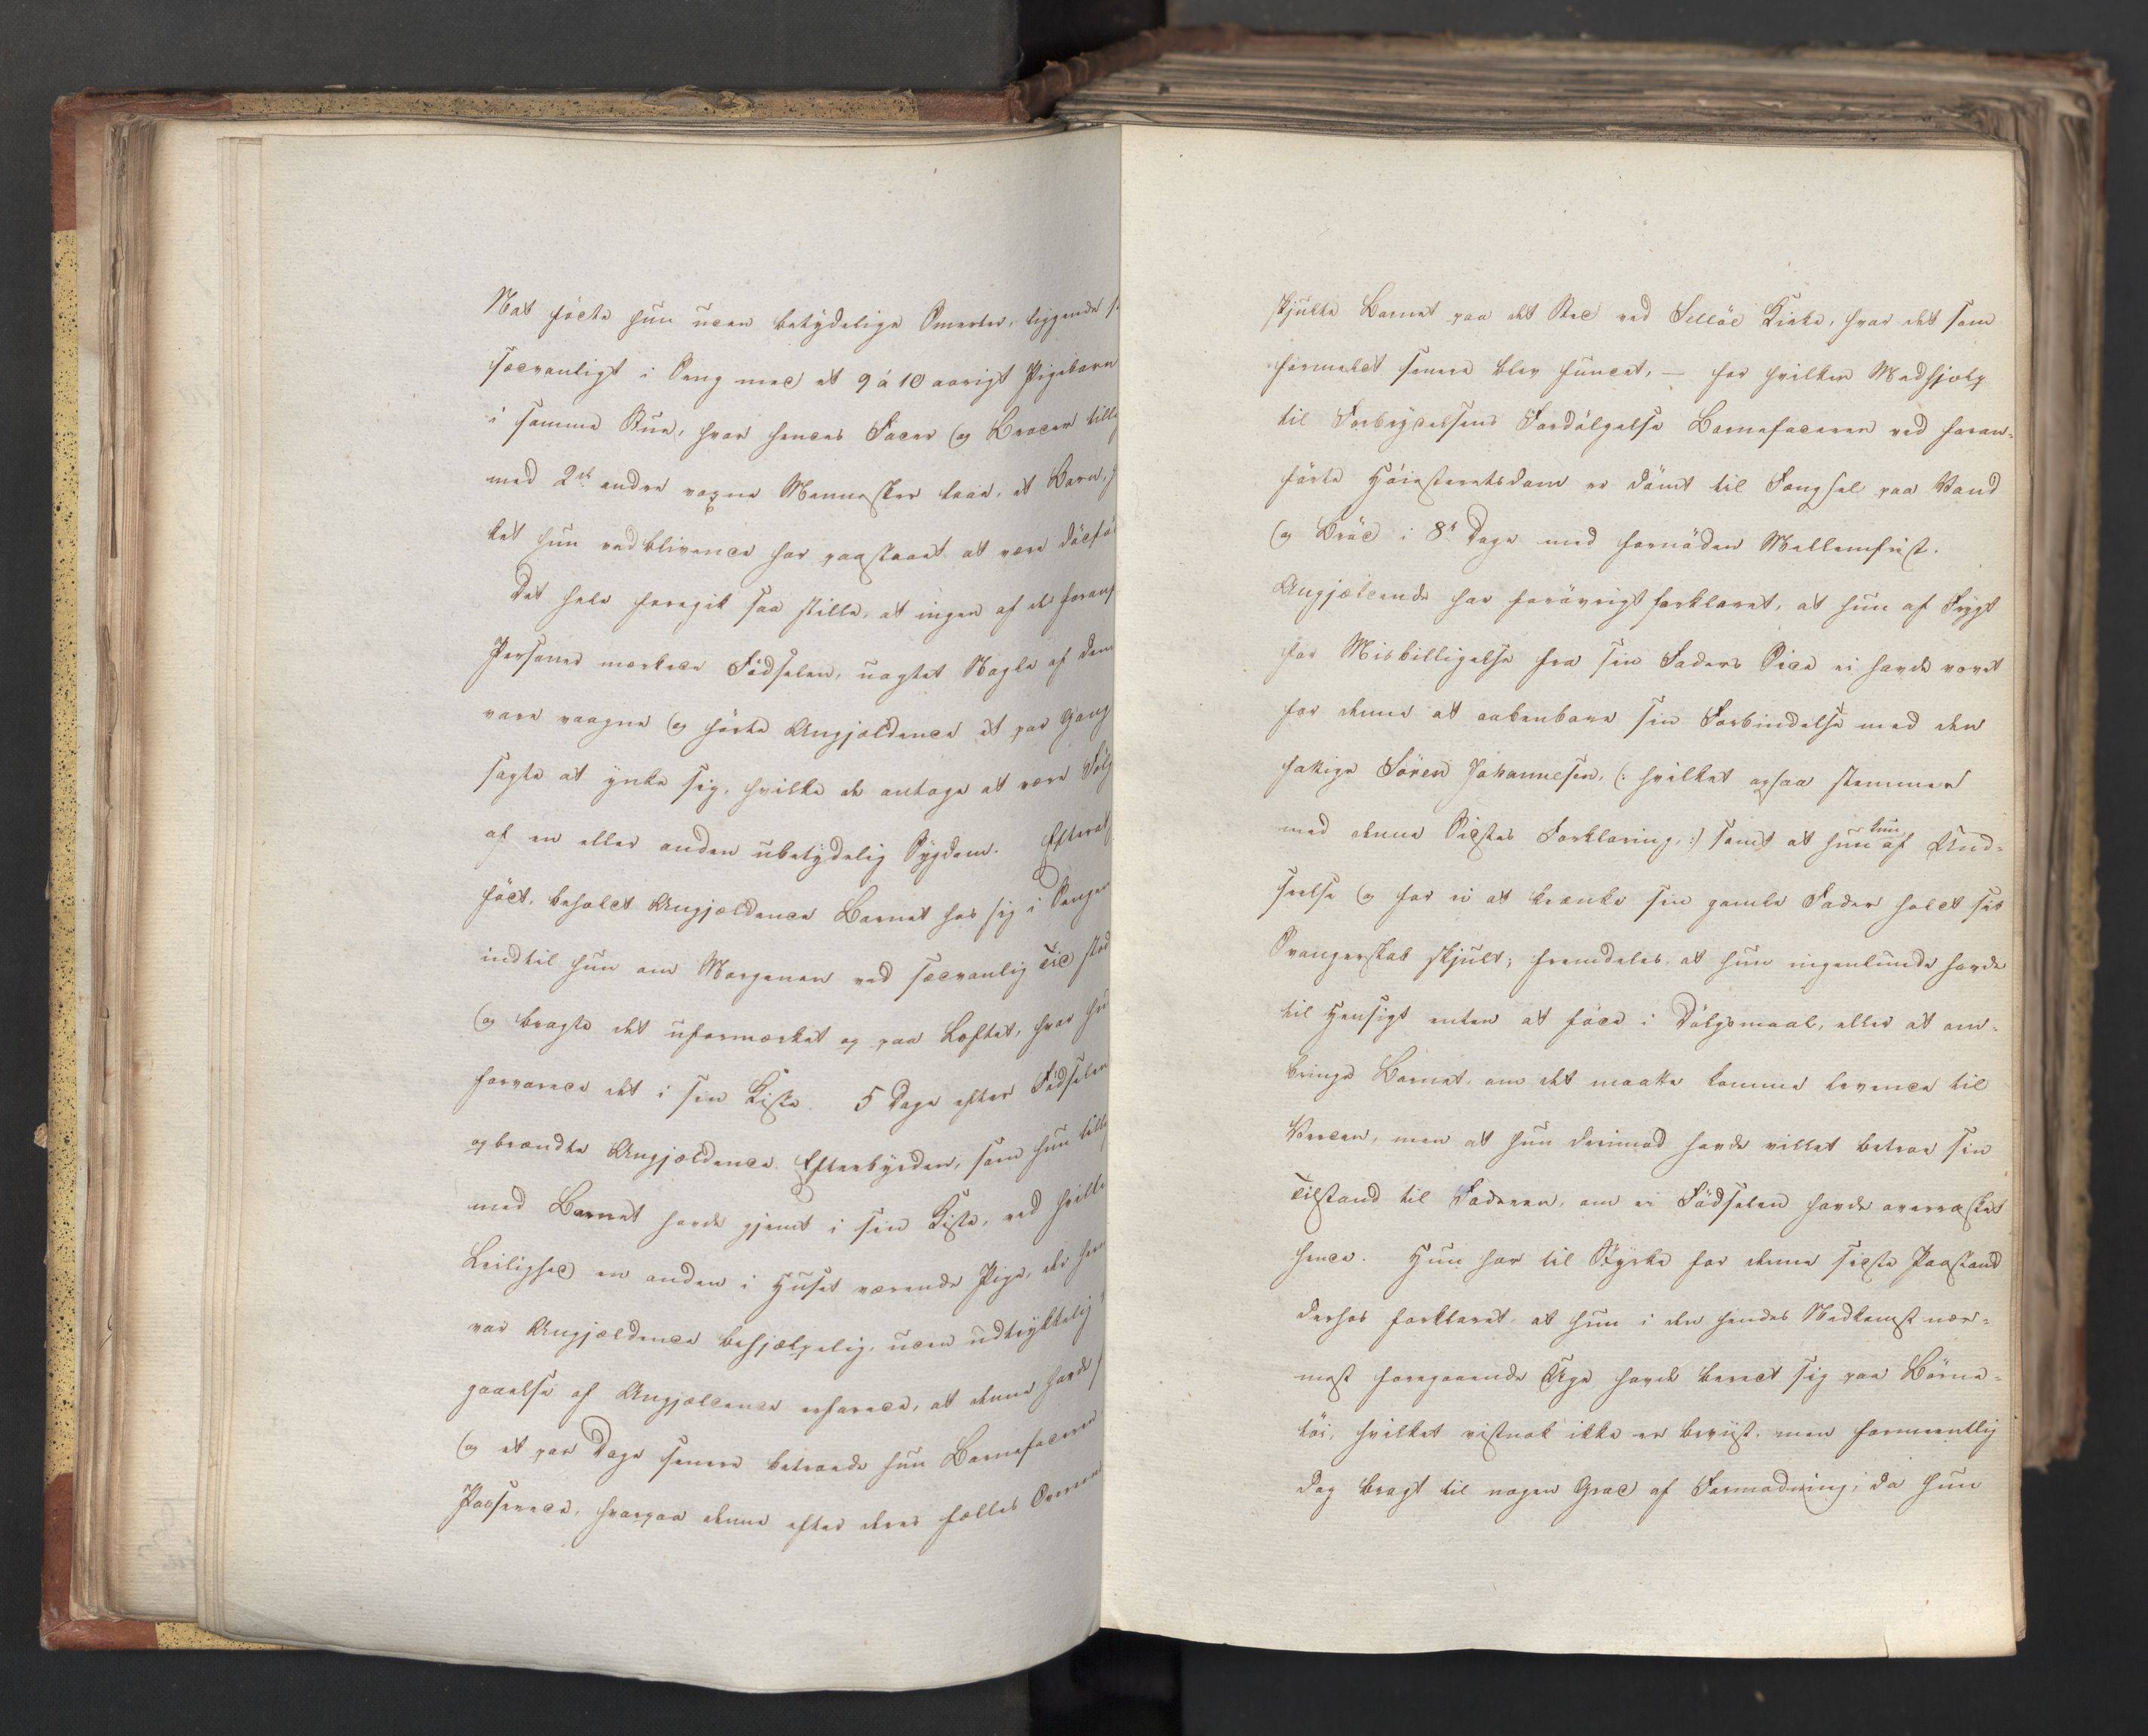 Nat födte hun uden betydelige Smerter, liggende s
sædvanligt i Seng med et 9 à 10 aarigt Pigebarn
i samme Stue, hvor hendes Fader og Broder tillig
med 2de andre voxne Mennesker laae, et Barn, h
ket hun vedblivende har paastaaet at være dödfö
Det hele foregik saa stille, at ingen af de foranf
Personer mærkede Födselen, uagtet Nogle af dem
vare vaagne og hörte Angjældende et par Gang
sagte at ynke sig, hvilke de antoge at være Fölg
af en eller anden ubetydelig Sygdom. Efterat
födt, beholdt Angjældende Barnet hos sig i Sengen
indtil hun om Morgenen ved sædvanlig Tid stod
og bragte det uformærket op paa Loftet, hvor hu
forvarede det i sin Kiste. 5 Dage efter Födselen
opbrændte Angjældende Efterbyrden, som hun tillig
med Barnet havde gjemt i sin Kiste, ved hvilke
Leilighed en anden i Huset værende Pige, der her
var Angjældende behjælpelig, uden udtrykkelig
gaaelse af Angjældende erfarede, at denne havde f
og et par Dage senere betroede hun Barnefaderen
Passerede, hvorpaa denne efter deres fælles Overen
skjulte Barnet paa et Sted ved Selløe Kirke, hvor det som
formeldt senere blev fundet, — for hvilken Medhjelp
til Forbrydelsens Fordölgelse Barnefaderen ved foran-
förte Höiesteretsdom er dömt til Fængsel paa Vand
og Bröd i 8te Dage med fornöden Mellemfrist.
Angjældende har forövrigt forklaret, at hun af Frygt
for Misbilligelse fra sin Faders Side ei havde vovet
for denne at aabenbare sin Forbindelse med den
fattige Sören Johannesen, (: hvilket ogsaa stemmer
med denne Sidstes Forklaring, :) samt at hun kun af Und-
seelse og for ei at krænke sin gamle Fader holdt sit
Svangerskab skjult; fremdeles, at hun ingenlunde havde
til Hensigt enten at föde i Dölgsmaal, eller at om-
bringe Barnet, om det maatte komme levende til
Verden, men at hun derimod havde villet betroe sin
Tilstand til Faderen, om ei Födselen havde overrasket
hende. Hun har til Styrke for denne sidste Paastand
derhos forklaret, at hun i den hendes Nedkomst nær-
mest foregaaende Uge havde beredt sig paa Börne-
töi, hvilket vistnok ikke er beviist, men formeentlig
dog bragt til nogen Grad af Formodning, da hun